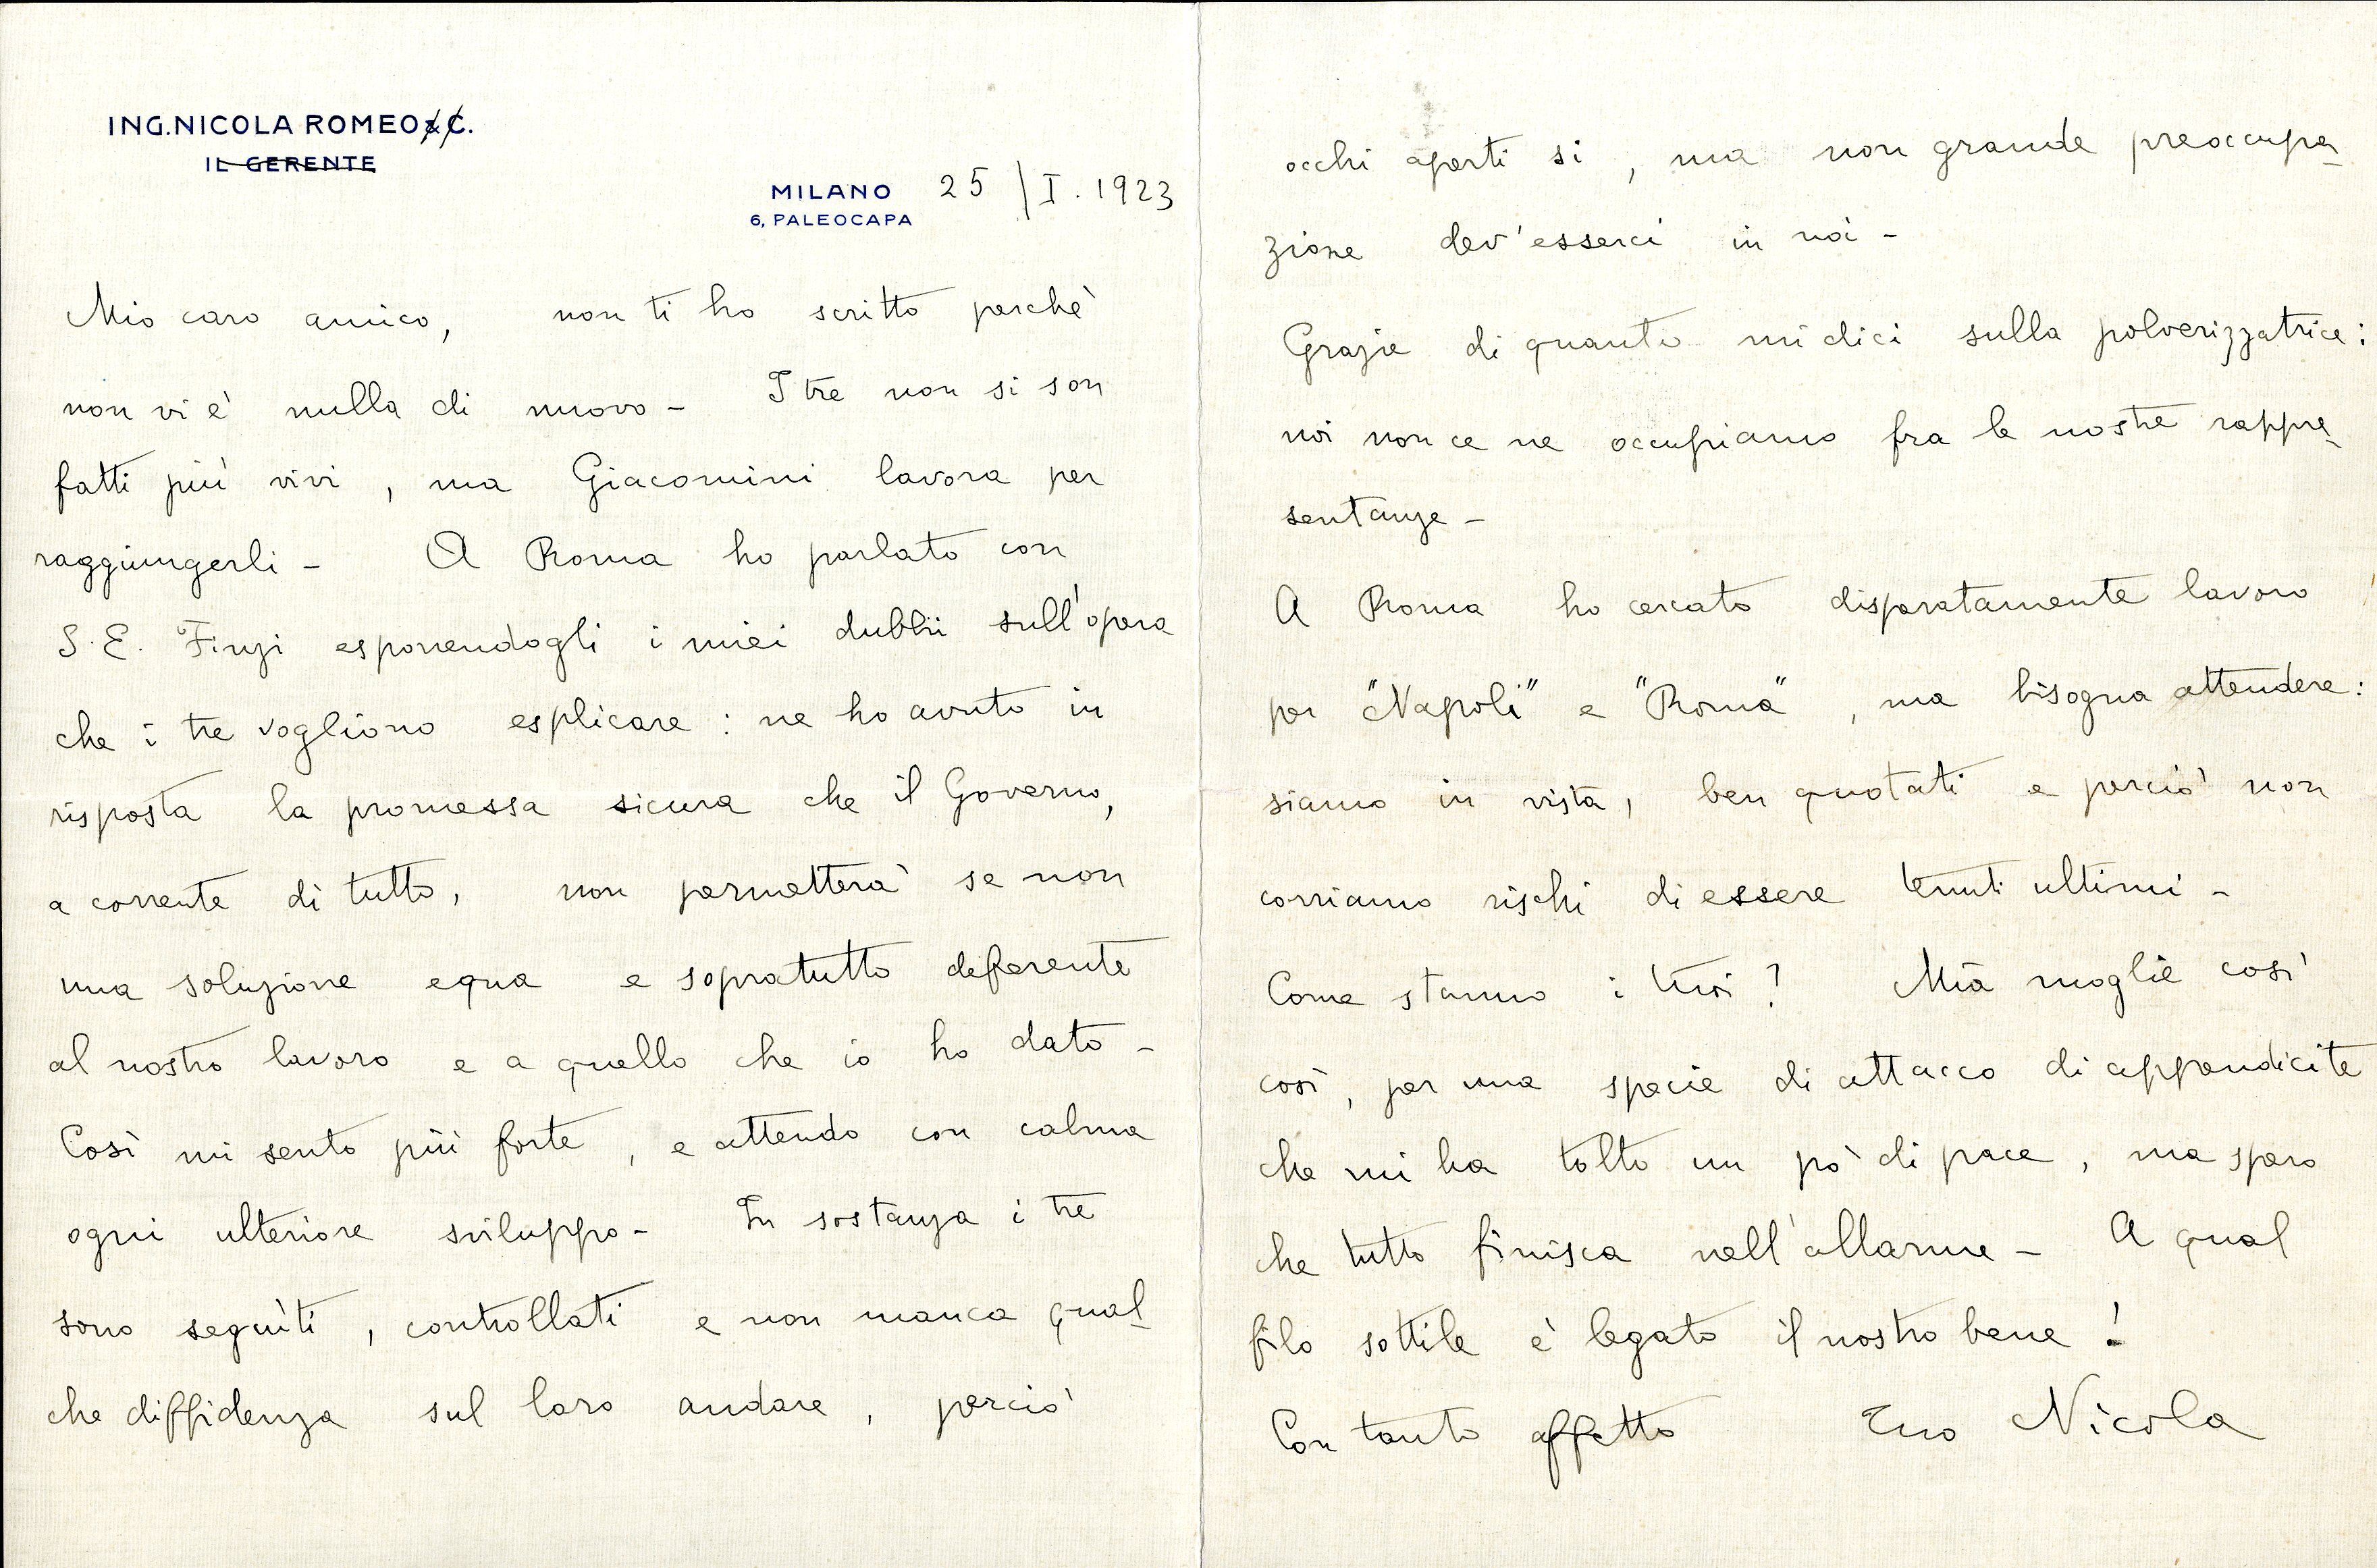 ING. NICOLA ROMEO & C.
IL GERENTE
MILANO 25/I.1923
6, PALEOCAPA
Mio caro amico, non ti ho scritto perchè
non vi è nulla di nuovo - I tre non si son
fatti più vivi, ma Giacomini lavora per
raggiungerli - A Roma ho parlato con
S.E. Finzi esponendogli i miei dubbii sull'opera
che i tre vogliono esplicare: ne ho avuto in
risposta la promessa sicura che il Governo,
a corrente di tutto, non permetterà se non
una soluzione equa e sopratutto deferente
al nostro lavoro e a quello che io ho dato -
Così mi sento più forte, e attendo con calma
ogni ulteriore sviluppo - In sostanza i tre
sono seguìti, controllati e non manca qual-
che diffidenza sul loro andare, perciò
occhi aperti si, ma non grande preoccupa-
zione dev'esserci in noi -
Grazie di quanto mi dici sulla polverizzatrice:
noi non ce ne occupiamo fra le nostre rappre-
sentanze -
A Roma ho cercato disperatamente lavoro
per "Napoli" e "Roma", ma bisogna attendere:
siamo in vista, ben quotati e perciò non
corriamo rischi di essere tenuti ultimi -
Come stanno i tuoi? Mia moglie così
così, per una specie di attacco di appendicite
che mi ha tolto un pò di pace, ma spero
che tutto finisca nell'allarme - A qual
filo sottile è legato il nostro bene!
Con tanto affetto Tuo Nicola